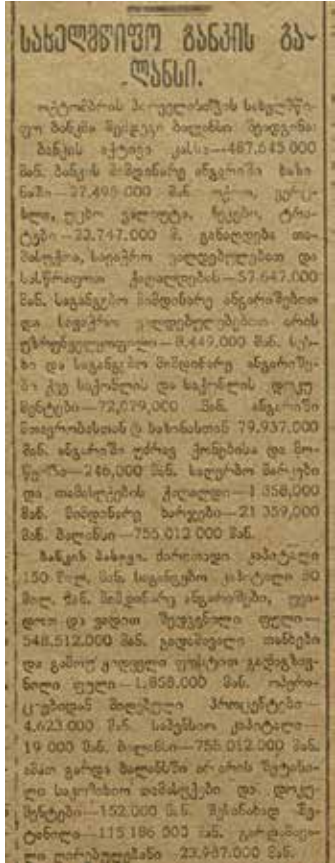 სახელმწიფო ბანკის ბა-
ლანსი.
ოქტომბრის პირველისთვის სახელმწი-
ფო ბანკმა შემდეგი ბალანსი შეადგინა:
ბანკის აქტივი კასსა—487.645 000
მან. ბანკის მიმდინარე ანგარიში ხაზი
ნაში—27.495 000 მან ოქრო, ვერც-
ხლი, უცხო ვალიუტა, ჩეკები, ტრა-
ტები—22.747.000 მ. განაღდება თა-
მასუქთა, სავაჭრო ვალდებულებათ და
სასწრაფოთ ქაღალდების—57.647 000
მან. საგანგებო მიმდინარე ანგარიშებით
და სავაჭრო ვალდებულებებით არის
უზრუნველყოფილი—8,449.000 მან. სეს-
ხი და საგანგებო მიმდინარე ანგარიშე-
ბი ქვე საქონლის და საქონლის დოკუ
მენტები—72,079,000 მან. ანგარიში
მთავრობასთან და ხაზინასთან 79.937.000
მან. ანგარიში უძრავ ქონებისა და მო-
—246,000 მან. საღერბო მარკები
და თამასუქების ქაღალდი—1 358,000
მან. მიმდინარე ხარჯები—21 359,000
მან. ბალანსი—755.012 000 მან.
ბანკის პასივი. ძირითადი კაპიტალი
150 მილ. მან. საგანგებო კაპიტალი 30
მილ. მან. მიმდინარე ანგარიშები,
და ვადით შედგენილი ფული—
548.512.000 მან. გადამავალი თანხები
და ფული—1,858.000 მან. ოპერა-
ციებიდან მიღებული პროცენტები—
4.623.000 მან. საპენსიო კაპიტალი—
19 000 მან. ბალანსი—755.012.000 მან.
ამათ გარდა ბალანსში არ არის შეტანი-
ლი საკომისიო თამასუქები და დოკუ-
მენტები—152.000 მან. შესანახად შე-
ტანილი—115 186 000 მან.
ლი ღირებულებანი 23.987.000 მან.